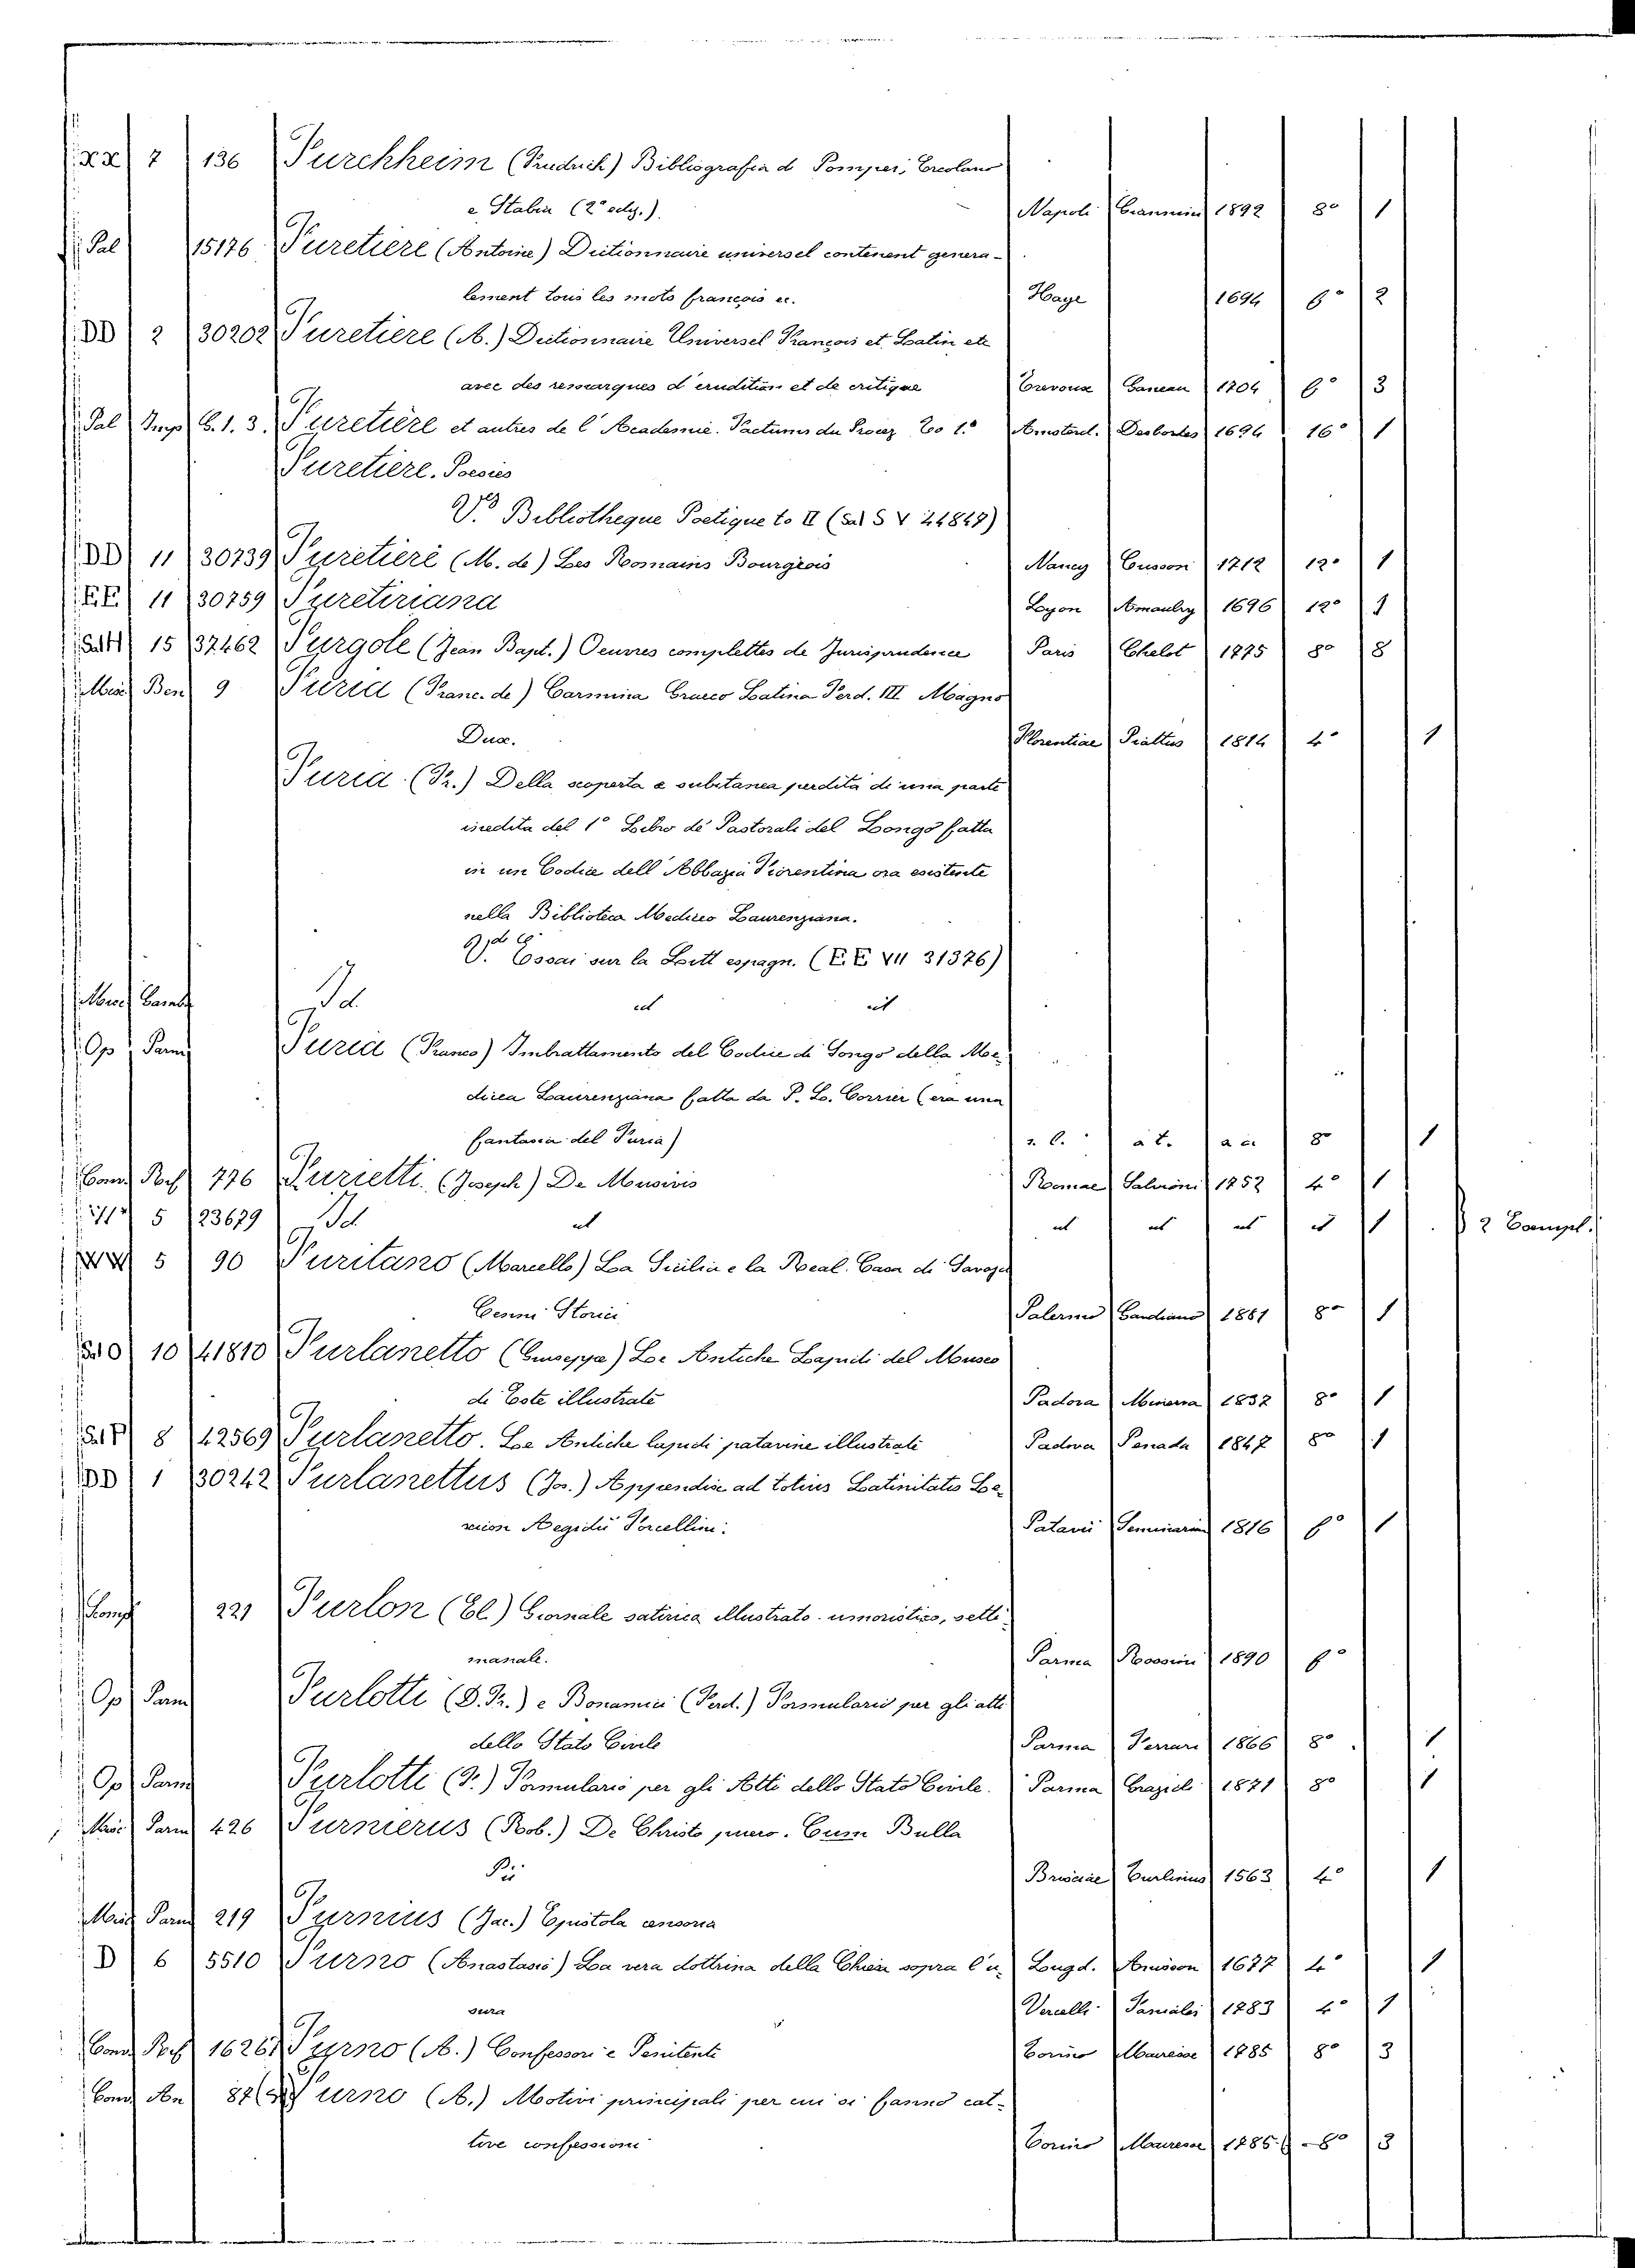 xx 7 136 Furchheim (Friedrich) Bibliografia di Pompei, Ercolano
e Stabia (2ª ediz.) Napoli 1892 8° 1
Pal 15176 Furetiere (Antoine) Dictionnaire universel contenent genera-
lement tous les mots françois ec. Haye 1694 f° 2
DD 2 30202 Furetiere (A.) Dictionnaire Universel François et Latin etc
avec des remarques d'erudition et de critique Trevoux Ganeau 1704 f° 3
Pal Imp 6.1.3. Furetière et autres de l'Academie. Factums du Procez To 1.° Amsterd. Desbordes 1694 16° 1
Furetiere. Poesies
V. Bibliotheque Poetique to II (Sal S V 24847)
DD 11 30739 Furetiere (M. de) Les Romains Bourgeois Nancy Cusson 1712 12° 1
EE 11 30759 Furetiriana Lyon Amaulry 1696 12° 1
15 37462 Furgole (Jean Bapt.) Oeuvres complettes de Jurisprudence Paris Chelot 1775 8° 8
Misc Ben 9 Furia (Franc. de) Carmina Graeco Latina Ferd. III Magno
Duce. Florentiae Piattus 1814 4° 1
Furia (Fr.) Della scoperta e subitanea perdita di una parte
inedita del 1° Libro de' Pastorali del Longo fatta
in un Codice dell'Abbazia Fiorentina ora esistente
nella Biblioteca Mediceo Laurenziana.
V. Essai sur la Litt espagn. (E.E VII 31376)
Misc Id ut ut
Op Parm Furia (Franco) Imbrattamento del Codice di Longo della Me-
dicea Laurenziana fatta da P. L. Corrier (era una
fantasia del Furia) s. l. a t. a a. 8° 1
Cond Roch 776 Furietti (Joseph) De Musivis Romae Salvioni 1752 4° 1
5 23679 Id ut ut ut ut ut 1 2 Campl.
5 90 Furitano (Marcello) La Sicilia e la Real. Casa di Savoja
Cenni Storici Palermo 1861 8° 1
10 41810 Furlanetto (Giuseppe) Le Antiche Lapidi del Museo
di Este illustrate Padova Minerva 1837 8° 1
8 42569 Furlanetto. Le Antiche lapidi patavine illustrate Padova Penada 1847 8° 1
DD 1 30242 Furlanettus (Jos.) Appendix ad totius Latinitatis Le-
xicon Aegidii Forcellini. Patavii Seminarium 1816 f° 1
221 Furlon (El.) Giornale satirica illustrato umoristico, setti-
manale. Parma Rossini 1890 f°
Op Parm Furlotti (D. Fr.) e Bonamici (Ferd.) Formulario per gli atti
dello Stato Civile Parma Ferrari 1866 8° 1
Op Parm Furlotti (F.) Formulario per gli Atti dello Stato Civile. Parma Grazioli 1871 8° 1
Misc Parm 426 Furnierus (Rob.) De Christo puero. Cum Bulla
Pii Brixiae Turlinius 1563 4° 1
Misc Parm 219 Furnius (Jac.) Epistola censoria
D 6 5510 Furno (Anastasio) La vera dottrina della Chiesa sopra l'u- Lugd. Anisson 1677 4° 1
sura Vercelli Panialis 1783 4° 1
Cond Roch 16261 Furno (A.) Confessori e Penitenti Torino Mairesse 1785 8° 3
Cond An 87 Furno (A.) Motivi principali per cui si fanno cat-
tive confessioni Torino Mairesse 1785 8° 3